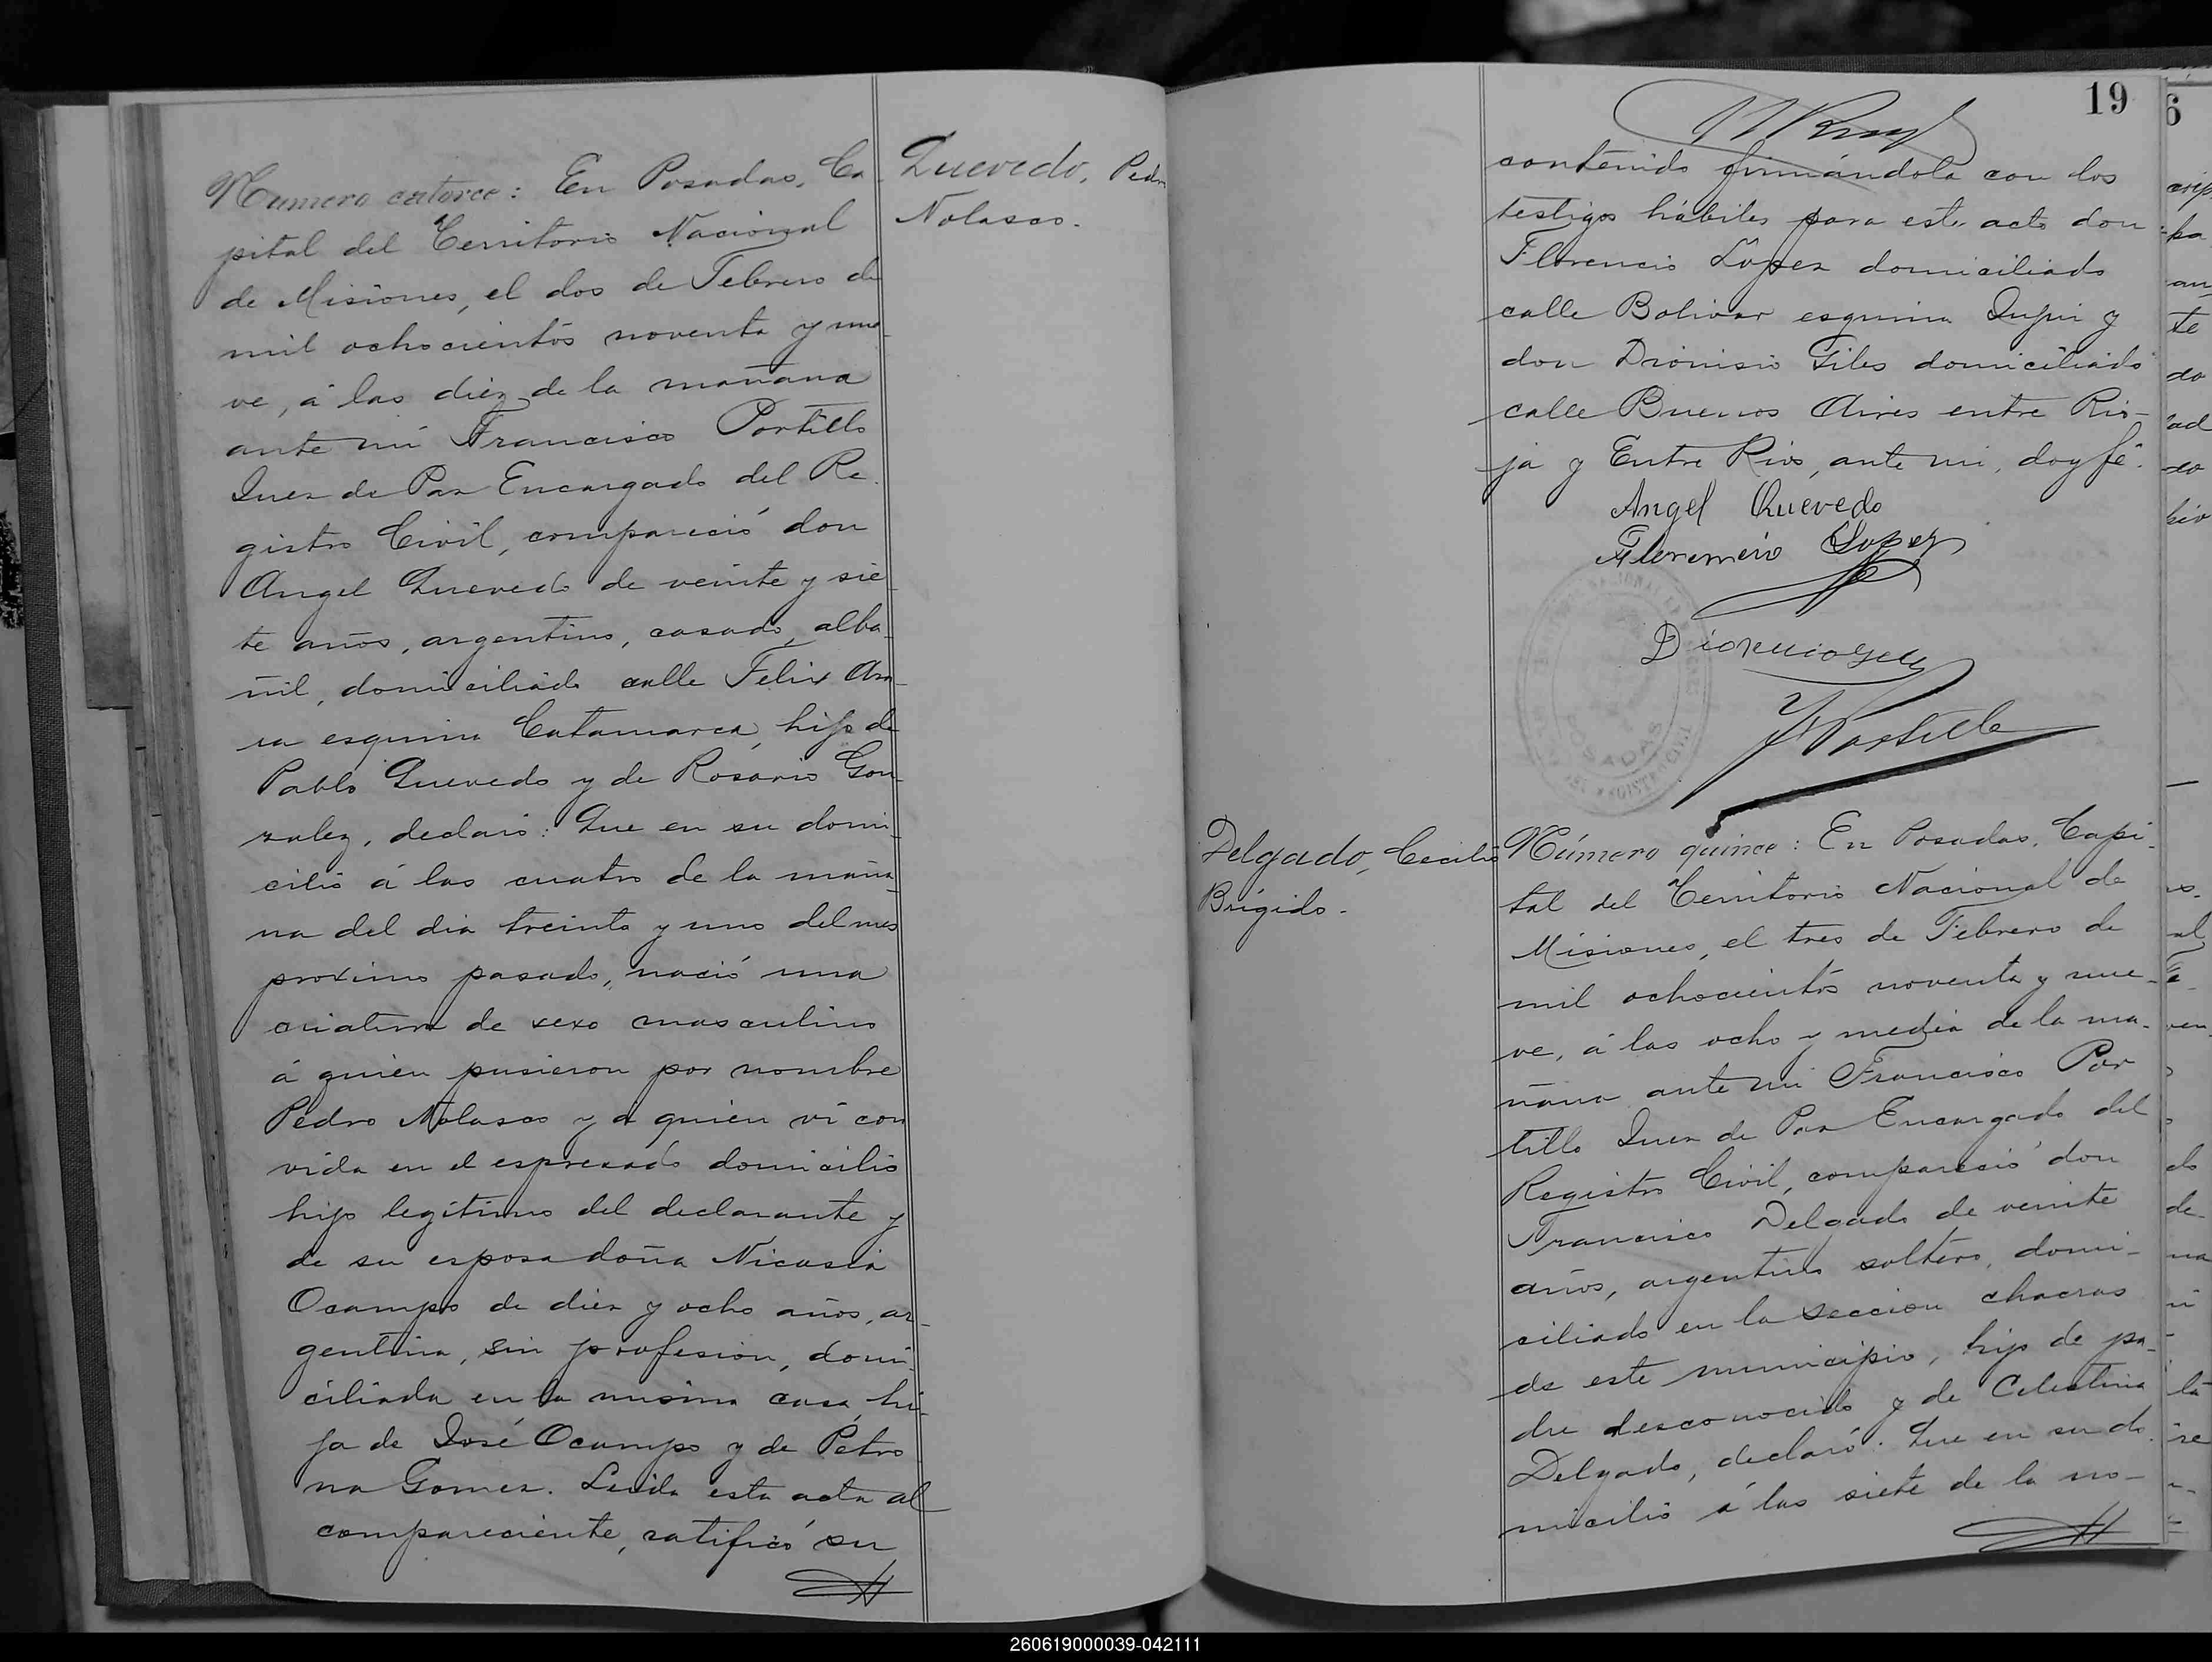 Quevedo, Pedro
Nolasco.
Numero catorce: En Posadas, Ca
pital del Territorio Nacional
de Misiones, el dos de Febrero de
mil ochocientos noventa y nue-
ve, á las diez de la mañana
ante mi Francisco Portillo
Juez de Paz Encargado del Re-
gistro Civil, compareció don
Angel Quevedo de veinte y sie-
te años, argentino, casado, alba-
ñil, domiciliado calle Felix Aza-
ra esquina Catamarca, hijo de
Pablo Quevedo y de Rosario Gon-
zalez, declaró: Que en su domi-
cilio á las cuatro de la maña-
na del dia treinta y uno del mes
proximo pasado, nació una
criatura de sexo masculino
á quien pusieron por nombre
Pedro Nolasco y á quien vi con
vida en el espresado domicilio
hijo legítimo del declarante y
de su esposa doña Nicasia
Ocampo de diez y ocho años, ar-
gentina, sin profesion, domi-
ciliada en la misma casa, hi-
ja de José Ocampo y de Petro
na Gomez. Leida esta acta al
compareciente, ratificó su
19
contenido firmándola con los
testigos hábiles para este acto don
Florencio Lopez domiciliado
calle Bolivar esquina Jujui y
don Dionisio Giles domiciliado
calle Buenos Aires entre Rio-
ja y Entre Rios, ante mi, doy fé.
Angel Quevedo
Florencio Lopez
F Portillo
POSADAS
Delgado, Cecilio
Brígido.
Número quince: En Posadas, Capi-
tal del Territorio Nacional de
Misiones, el tres de Febrero de
mil ochocientos noventa y nue-
ve, á las ocho y media de la ma-
ñana ante mi Francisco Por
tillo Juez de Paz Encargado del
Registro Civil, compareció don
Francisco Delgado de veinte
años, argentino soltero, domi-
ciliado en la seccion chacras
de este municipio, hijo de pa-
dre desconocido y de Celestina
Delgado, declaró: Que en su do-
micilio á las siete de la no-
260619000039-042111